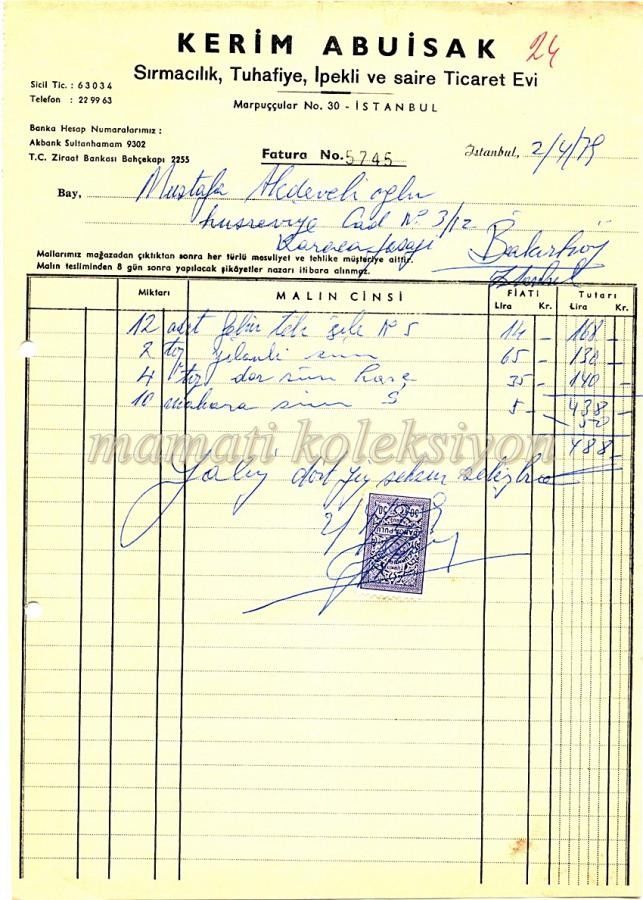 KERİM ABUİSAK
24
Sırmacılık, Tuhafiye, İpekli ve saire Ticaret Evi
Sicil Tic. : 63034
Telefon : 22 99 63
Marpuççular No. 30 - İSTANBUL
Banka Hesap Numaralarımız :
Akbank Sultanhamam 9302
T.C. Ziraat Bankası Bahçekapı 2255
Fatura No. 5745
İstanbul, 2/4/79
Bay, Mustafa
Cad No 3/12
Bakırköy
İstanbul
Mallarımız mağazadan çıktıktan sonra her türlü mesuliyet ve tehlike müşteriye aittir.
Malın tesliminden 8 gün sonra yapılacak şikâyetler nazarı itibara alınmaz.
Miktarı MALIN CİNSİ FİATI Tutarı
Lira Kr. Lira Kr.
12 No 5 14 - 168 -
2 65 - 130 -
4 35 - 140 -
10 5 - 438 -
50
488 -
mamati koleksiyon
dört yüz seksen sekiz lira